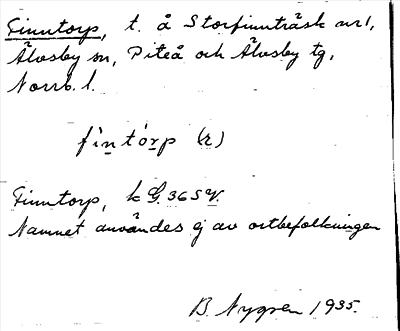 Finntorp, t. å Storfinnträsk nr 1,
Älvsby sn, Piteå och Älvsby tg,
Norrb. l.
fìntórp (r)
Finntorp, k G. 36 SV.
Namnet användes ej av ortbefolkningen
B. Nygren 1935.